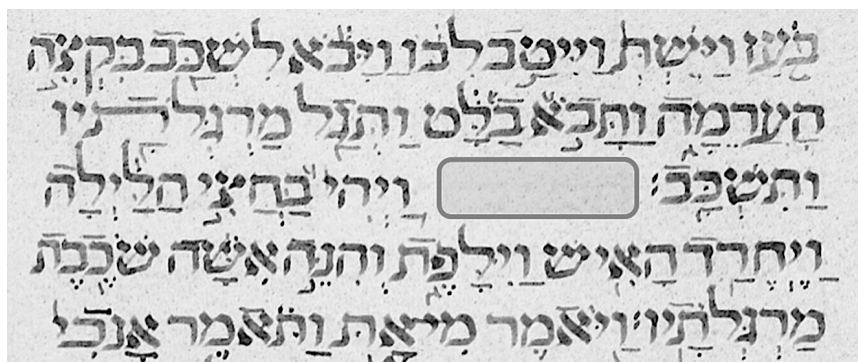 בֹּעַז וַיֵּשְׁתְּ וַיִּיטַב לִבּוֹ וַיָּבֹא לִשְׁכַּב בִּקְצֵה
הָעֲרֵמָה וַתָּבֹא בַלָּט וַתְּגַל מַרְגְּלֹתָיו
וַתִּשְׁכָּב׃ וַיְהִי בַּחֲצִי הַלַּיְלָה
וַיֶּחֱרַד הָאִישׁ וַיִּלָּפֵת וְהִנֵּה אִשָּׁה שֹׁכֶבֶת
מַרְגְּלֹתָיו׃ וַיֹּאמֶר מִי אָתְּ וַתֹּאמֶר אָנֹכִי